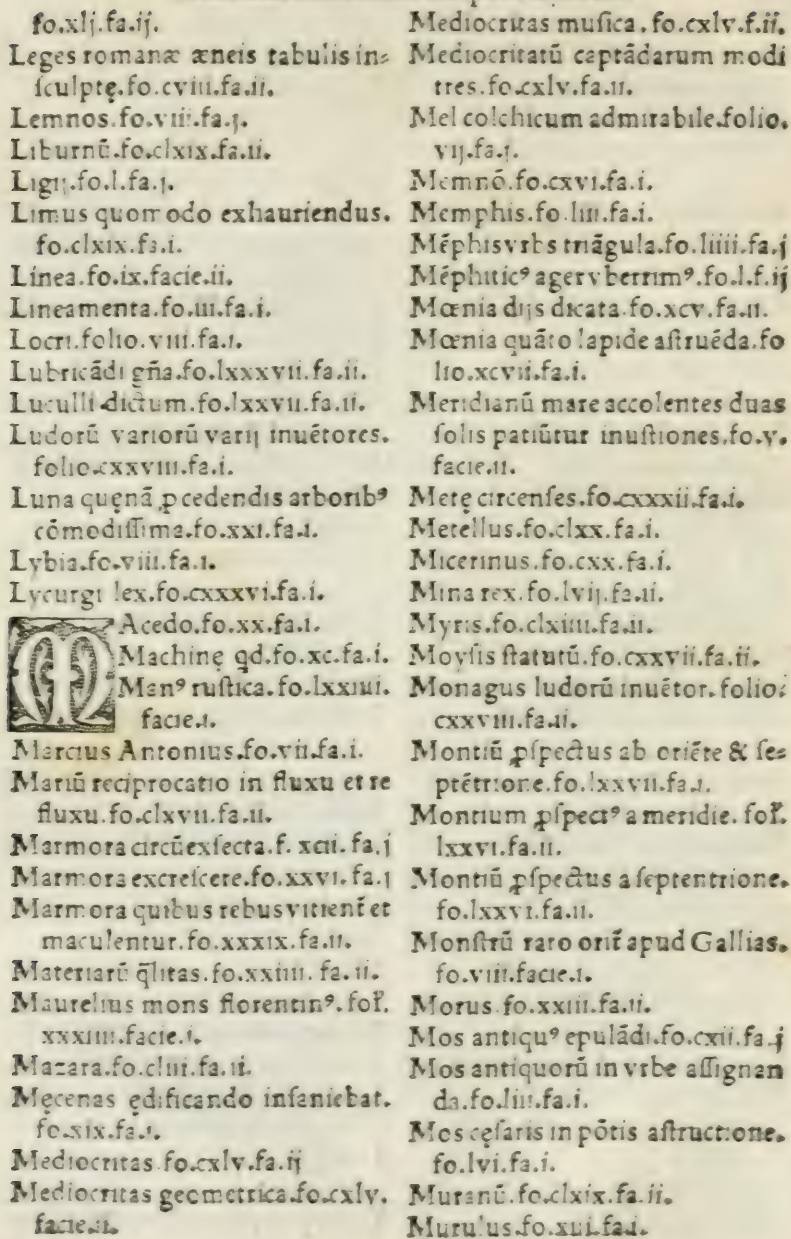 fo.xlj.fa.ij.
Leges romanæ æneis tabulis in⸗
ſculptę.fo.cviii.fa.ii.
Lemnos.fo.vii.fa.j.
Liburnū.fo.clxix.fa.ii.
Ligij.fo.l.fa.j.
Limus quomodo exhauriendus.
fo.clxix.fa.i.
Linea.fo.ix.facie.ii.
Lineamenta.fo.iii.fa.i.
Locri.folio.viii.fa.i.
Lubricādi gña.fo.lxxxvii.fa.ii.
Luculli dictum.fo.lxxvii.fa.ii.
Ludorū variorū varij inuētores.
folio.cxxviii.fa.i.
Luna quęnā ꝓcedendis arboribꝰ
cōmodiſſima.fo.xxi.fa.i.
Lybia.fo.viii.fa.i.
Lycurgi lex.fo.cxxxvi.fa.i.
MAcedo.fo.xx.fa.i.
Machinę qd.fo.xc.fa.i.
Manꝰ ruſtica.fo.lxxiiii.
facie.i.
Marcius Antonius.fo.vii.fa.i.
Mariū reciprocatio in fluxu et re
fluxu.fo.clxvii.fa.ii.
Marmora circūexſecta.f.xcii.fa.j
Marmora excreſcere.fo.xxvi.fa.j
Marmora quibus rebus vitient̄ et
maculentur.fo.xxxix.fa.ii.
Materiarū q̄litas.fo.xxiiii.fa.ii.
Maurelius mons florentinꝰ.fol̄.
xxxiiii.facie.i.
Mazara.fo.cliii.fa.ii.
Męcenas ędificando inſaniebat.
fo.xix.fa.i.
Mediocritas.fo.cxlv.fa.ij
Mediocritas geometrica.fo.cxlv.
facie.ii.
Mediocritas muſica.fo.cxlv.f.ii.
Mediocritatū captādarum modi
tres.fo.cxlv.fa.ii.
Mel colchicum admirabile.folio.
vij.fa.j.
Memnō.fo.cxvi.fa.i.
Memphis.fo.liii.fa.i.
Mēphis vrbs triāgula.fo.liiii.fa.j
Mēphiticꝰ ager vberrimꝰ.fo.l.f.ij
Mœnia dijs dicata.fo.xcv.fa.ii.
Mœnia quāto lapide aſtruēda.fo
lio.xcvii.fa.i.
Meridianū mare accolentes duas
ſolis patiūtur inuſtiones.fo.v.
facie.ii.
Metę circenſes.fo.cxxxii.fa.i.
Metellus.fo.clxx.fa.i.
Micerinus.fo.cxx.fa.i.
Mina rex.fo.lvij.fa.ii.
Myris.fo.clxiiii.fa.ii.
Moyſis ſtatutū.fo.cxxvii.fa.ii.
Monagus ludorū inuētor.folio⸗
cxxviii.fa.ii.
Montiū ꝓſpectus ab oriēte & ſe⸗
ptētrione.fo.lxxvii.fa.i.
Montium ꝓſpectꝰ a meridie.fol̄.
lxxvi.fa.ii.
Montiū ꝓſpectus a ſeptentrione.
fo.lxxvi.fa.ii.
Monſtrū raro orit̄ apud Gallias.
fo.viii.facie.i.
Morus.fo.xxiii.fa.ii.
Mos antiquꝰ epulādi.fo.cxii.fa.j
Mos antiquorū in vrbe aſſignan
da.fo.liii.fa.i.
Mos cęſaris in pōtis aſtructione.
fo.lvi.fa.i.
Muranū.fo.clxix.fa.ii.
Murulus.fo.xlii.fa.i.